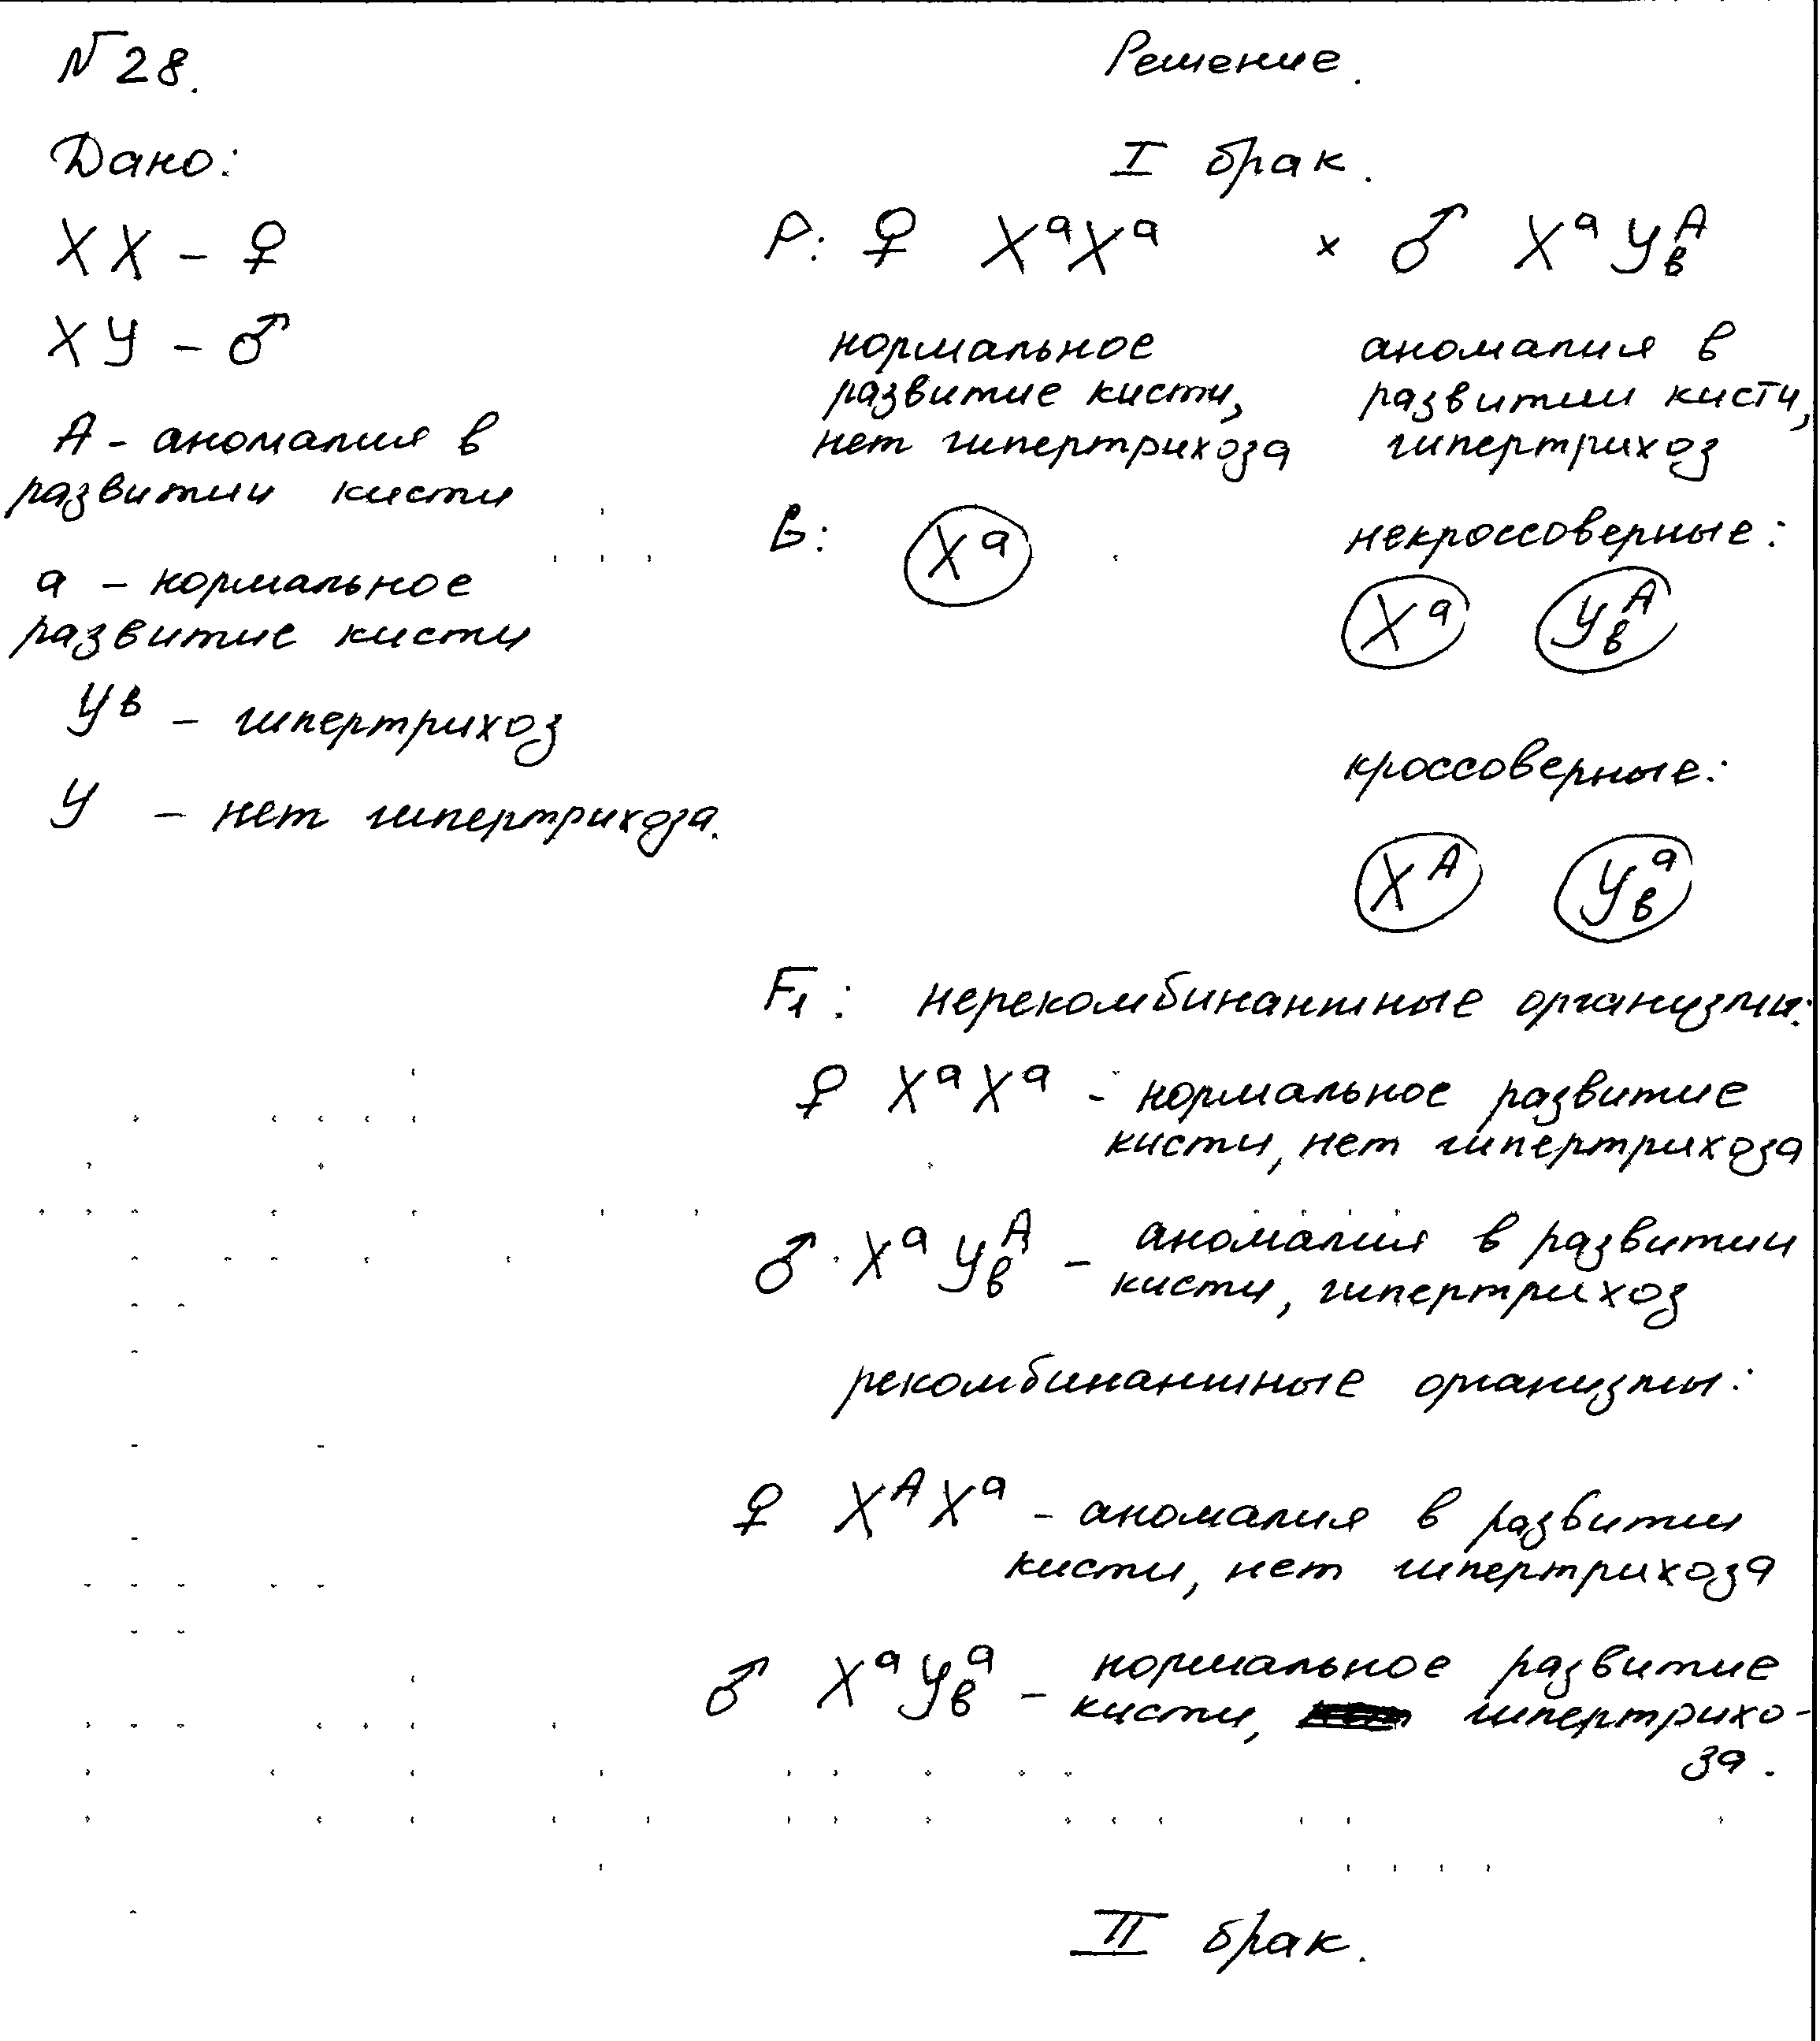 №28.
Решение.
Дано:
I брак.
XX - ♀
XY - ♂
A - аномалия в
развитии кисти
a - нормальное
развитие кисти
Yᵇ - гипертрихоз
Y - нет гипертрихоза.
P: ♀ XᵃXᵃ × ♂ XᵃYᴬв
нормальное
развитие кисти,
нет гипертрихоза
аномалия в
развитии кисти,
гипертрихоз
G: Xᵃ
некроссоверные:
Xᵃ Yᴬв
кроссоверные:
Xᴬ Yᵃв
F₁: нерекомбинантные организмы:
♀ XᵃXᵃ - нормальное развитие
кисти, нет гипертрихоза
♂ XᵃYᴬв - аномалия в развитии
кисти, гипертрихоз
рекомбинантные организмы:
♀ XᴬXᵃ - аномалия в развитии
кисти, нет гипертрихоза
♂ XᵃYᵃв - нормальное развитие
кисти, гипертрихо-
за.
II брак.